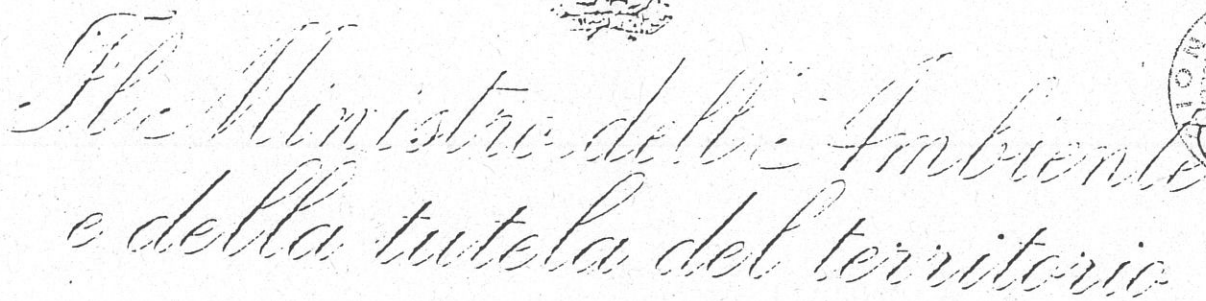 Il Ministro dell'Ambiente
e della tutela del territorio